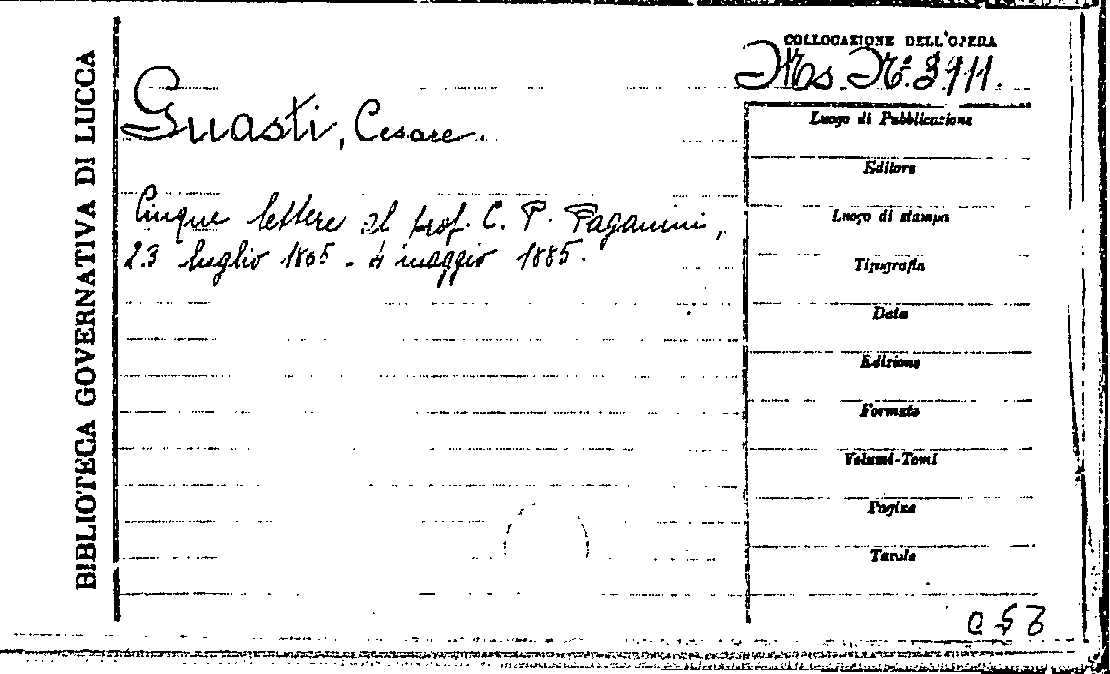 BIBLIOTECA GOVERNATIVA DI LUCCA
COLLOCAZIONE DELL'OPERA
Ms. N.° 3711.
Guasti, Cesare.
Cinque lettere al prof. C. P. Paganini,
23 luglio 1865 - 4 maggio 1885.
Luogo di Pubblicazione
Editore
Luogo di stampa
Tipografia
Data
Edizione
Formato
Volumi-Tomi
Pagine
Tavole